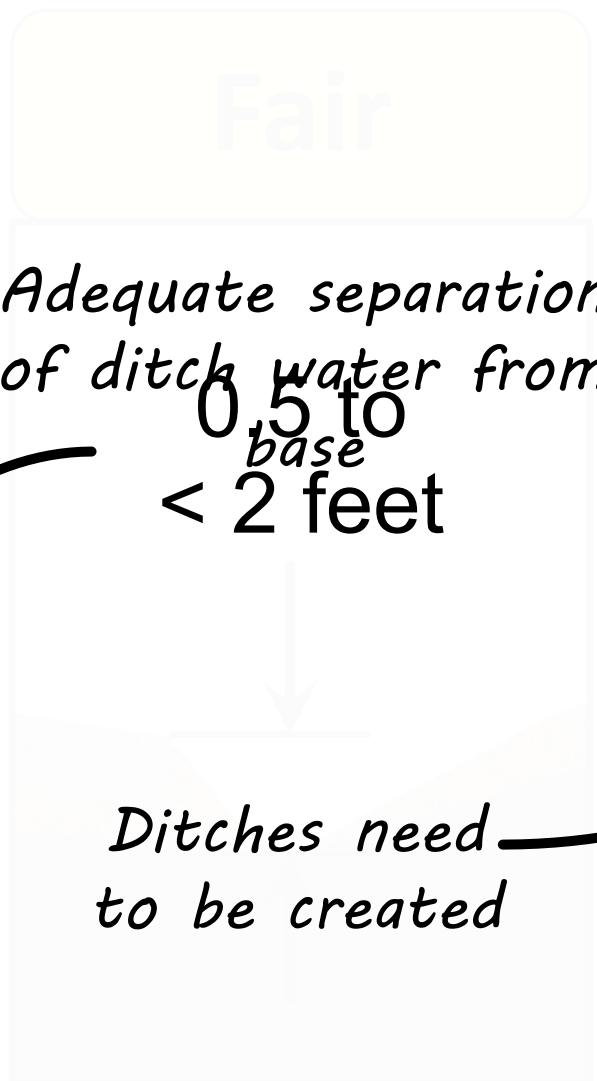 Fair
Adequate separation
of ditch water from
base
0.5 to
< 2 feet
Ditches need
to be created